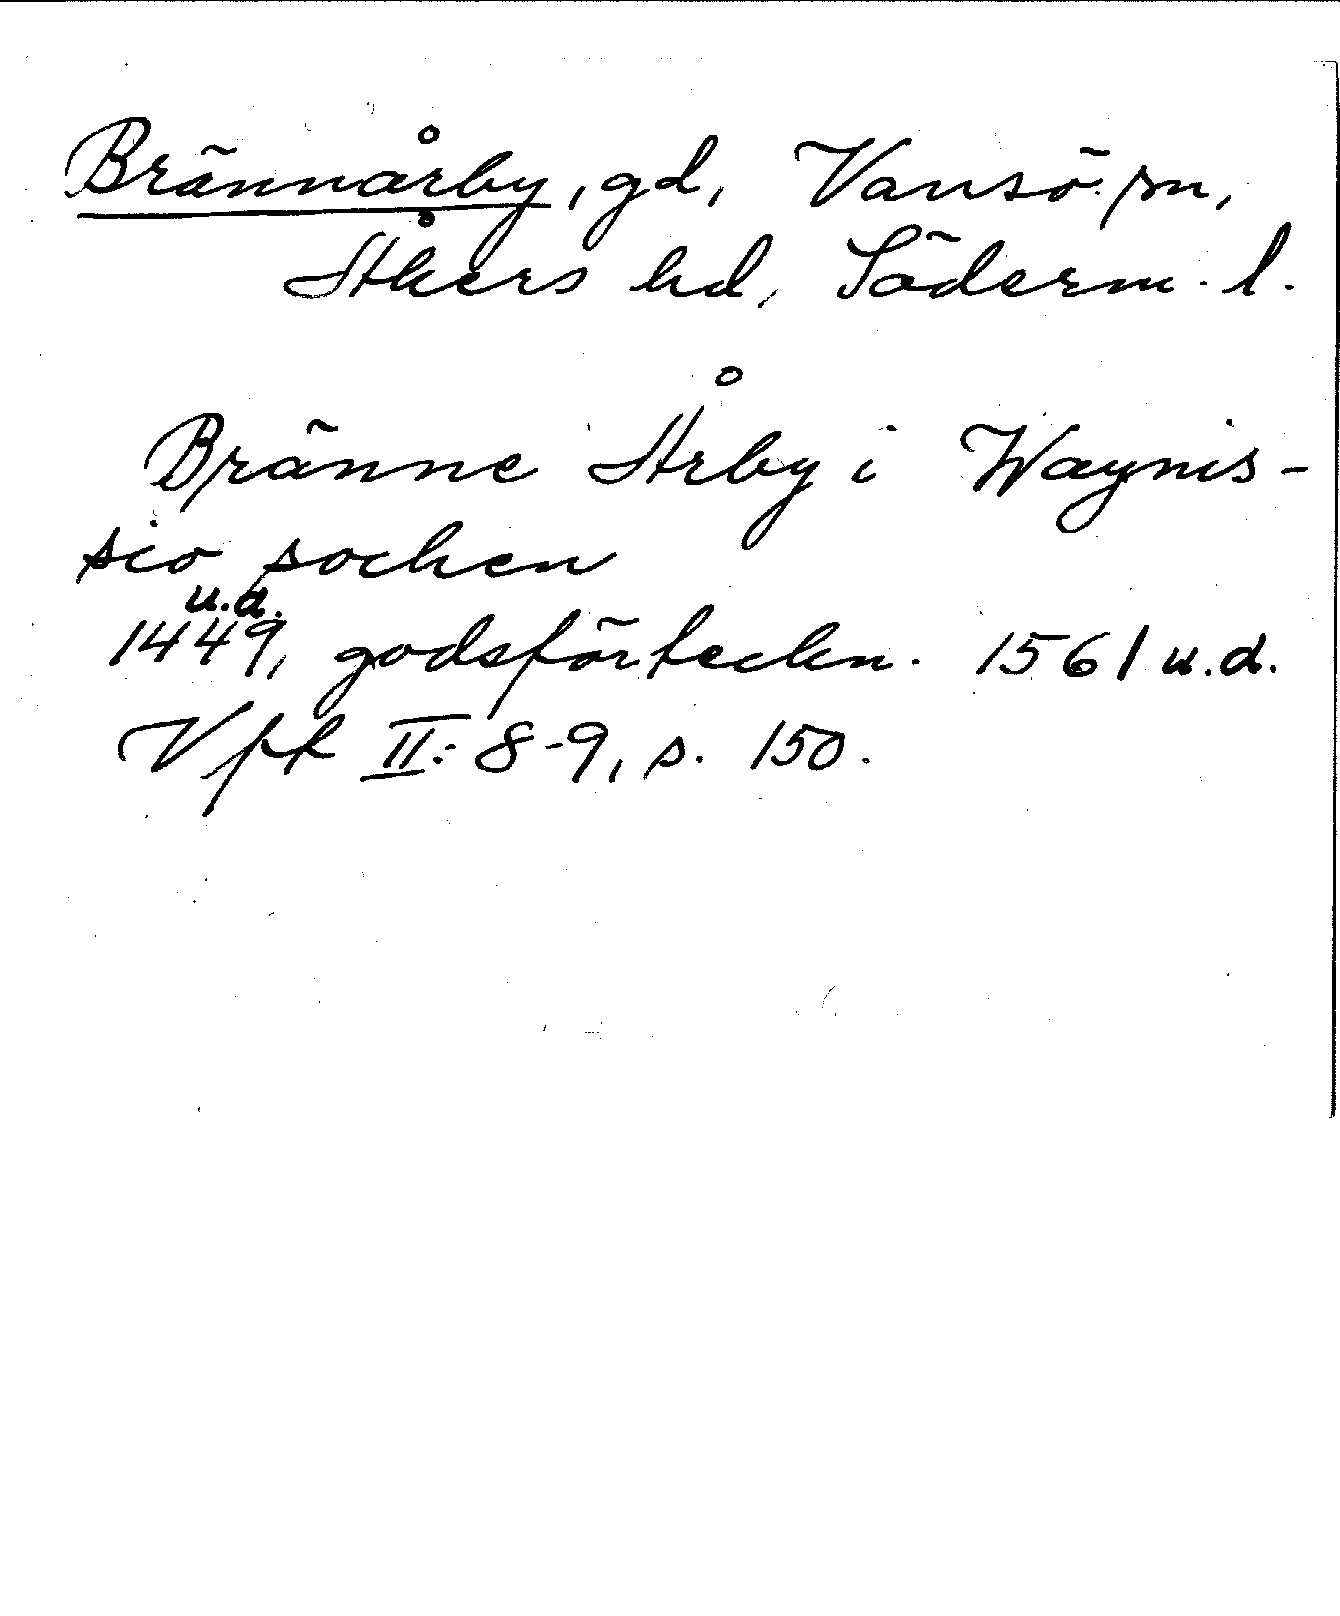 Brännårby, gd, Vansö sn,
Åkers hd, Söderm. l.
Bränne Årby i Waynis-
sio socken
u.d.
1449, godsförteckn. 1561 u.d.
Vfk II: 8-9, s. 150.